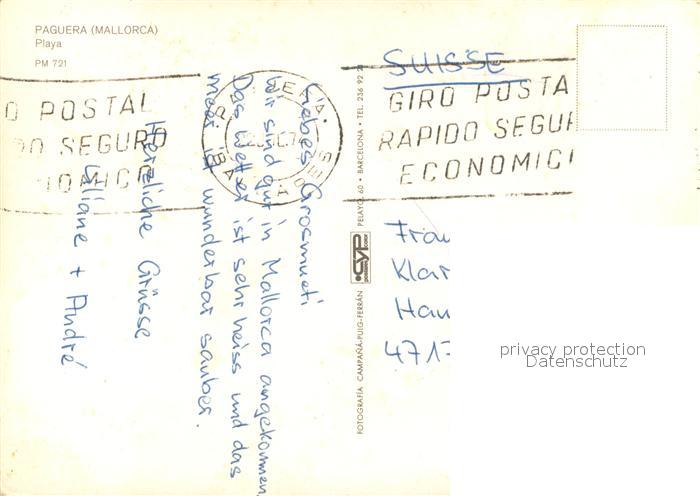 PAGUERA (MALLORCA)
Playa
PM 721
O POSTAL
DO SEGURO
NOMICO
GIRO POSTA
RAPIDO SEGUR
ECONOMIC
SUISSE
Liebes Grosmueti
Wir sind gut in Mallorca angekommen.
Das Wetter ist sehr heiss und das
Meer ist wunderbar sauber.
Herzliche Grüsse
Liliane + André
FOTOGRAFÍA CAMPAÑÁ-PUIG-FERRÁN
CYP
PELAYO, 60 • BARCELONA • TEL. 236 92 2
Frau
Klar
Han
4717
privacy protection
Datenschutz